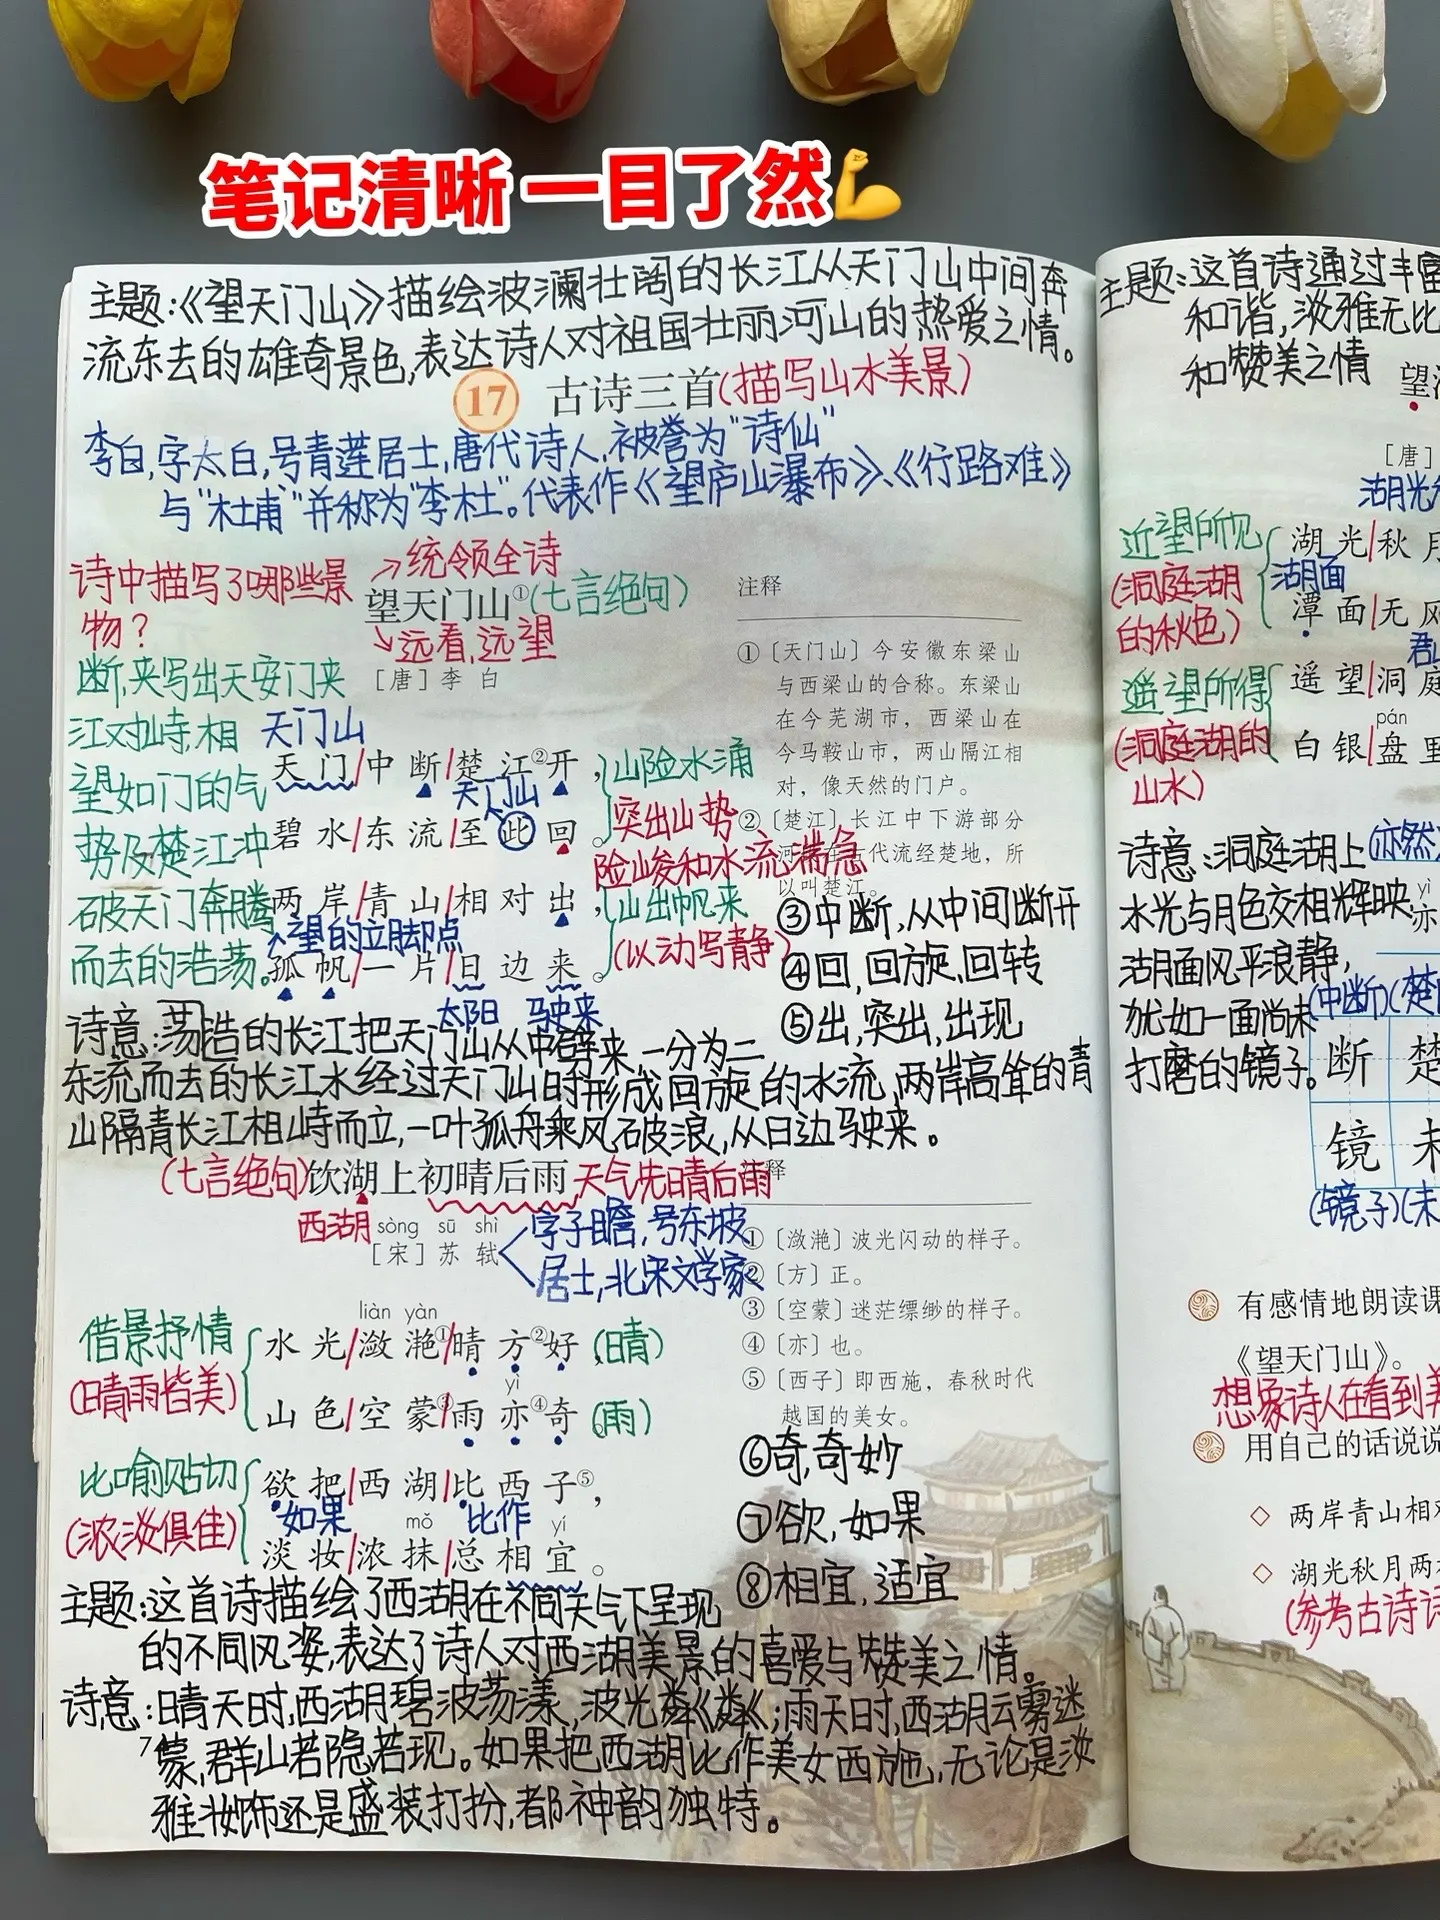 笔记清晰 一目了然💪
主题:《望天门山》描绘波澜壮阔的长江从天门山中间奔
流东去的雄奇景色,表达诗人对祖国壮丽河山的热爱之情。
17 古诗三首(描写山水美景)
李白,字太白,号青莲居士,唐代诗人,被誉为"诗仙"
与"杜甫"并称为"李杜"。代表作《望庐山瀑布》、《行路难》
诗中描写了哪些景
物?
统领全诗
望天门山①(七言绝句)
远看,远望
[唐] 李 白
断,夹写出天安门夹
江对峙,相
望如门的气
势及楚江冲
破天门奔腾
而去的浩荡。
天门山
天 门/中 断/楚 江②开,
天门山
碧 水/东 流/至 此 回。
两 岸/青 山/相 对 出,
望的立脚点
孤 帆/一 片/日 边 来。
太阳 驶来
山险水涌
突出山势
险峻和水流湍急
山出帆来
(以动写静)
注释
①〔天门山〕今安徽东梁山
与西梁山的合称。东梁山
在今芜湖市,西梁山在
今马鞍山市,两山隔江相
对,像天然的门户。
②〔楚江〕长江中下游部分
河 在古代流经楚地,所
以叫楚江。
③中断,从中间断开
④回,回旋,回转
⑤出,突出,出现
诗意:浩荡的长江把天门山从中劈来,一分为二
东流而去的长江水经过天门山时形成回旋的水流,两岸高耸的青
山隔青长江相峙而立,一叶孤舟乘风破浪,从日边驶来。
(七言绝句)饮湖上初晴后雨 天气先晴后雨
西湖
sòng sū shì
[宋] 苏 轼
字子瞻,号东坡
居士,北宋文学家
借景抒情
(晴雨皆美)
liàn yàn
水 光/潋 滟①/晴 方②好,(晴)
yì
山 色/空 蒙③/雨 亦④奇。(雨)
比喻贴切
(浓淡俱佳)
欲 把/西 湖/比 西 子⑤,
如果 比作
mǒ yí
淡 妆/浓 抹/总 相 宜。
注释
①〔潋滟〕波光闪动的样子。
②〔方〕正。
③〔空蒙〕迷茫缥缈的样子。
④〔亦〕也。
⑤〔西子〕即西施,春秋时代
越国的美女。
⑥奇,奇妙
⑦欲,如果
⑧相宜,适宜
主题:这首诗描绘了西湖在不同天气下呈现
的不同风姿,表达了诗人对西湖美景的喜爱与赞美之情。
诗意:晴天时,西湖碧波荡漾,波光粼粼;雨天时,西湖云雾迷
蒙,群山若隐若现。如果把西湖比作美女西施,无论是淡
雅妆饰还是盛装打扮,都神韵独特。
主题:这首诗通过丰富
和谐,淡雅无比
和赞美之情
望
[唐]
湖光
近望所见
(洞庭湖
的秋色)
湖 光/秋 月
湖面
潭 面/无 风
君山
遥望所得
(洞庭湖的
山水)
遥 望/洞 庭
pán
白 银/盘 里
诗意:洞庭湖上
水光与月色交相辉映,
湖面风平浪静,
犹如一面尚未
打磨的镜子。
(亦然)
yì
亦
(中断)(楚
断 楚
镜 未
(镜子)(未
有感情地朗读课
《望天门山》。
想象诗人在看到美
用自己的话说说
◇ 两岸青山相对
◇ 湖光秋月两
(参考古诗诗